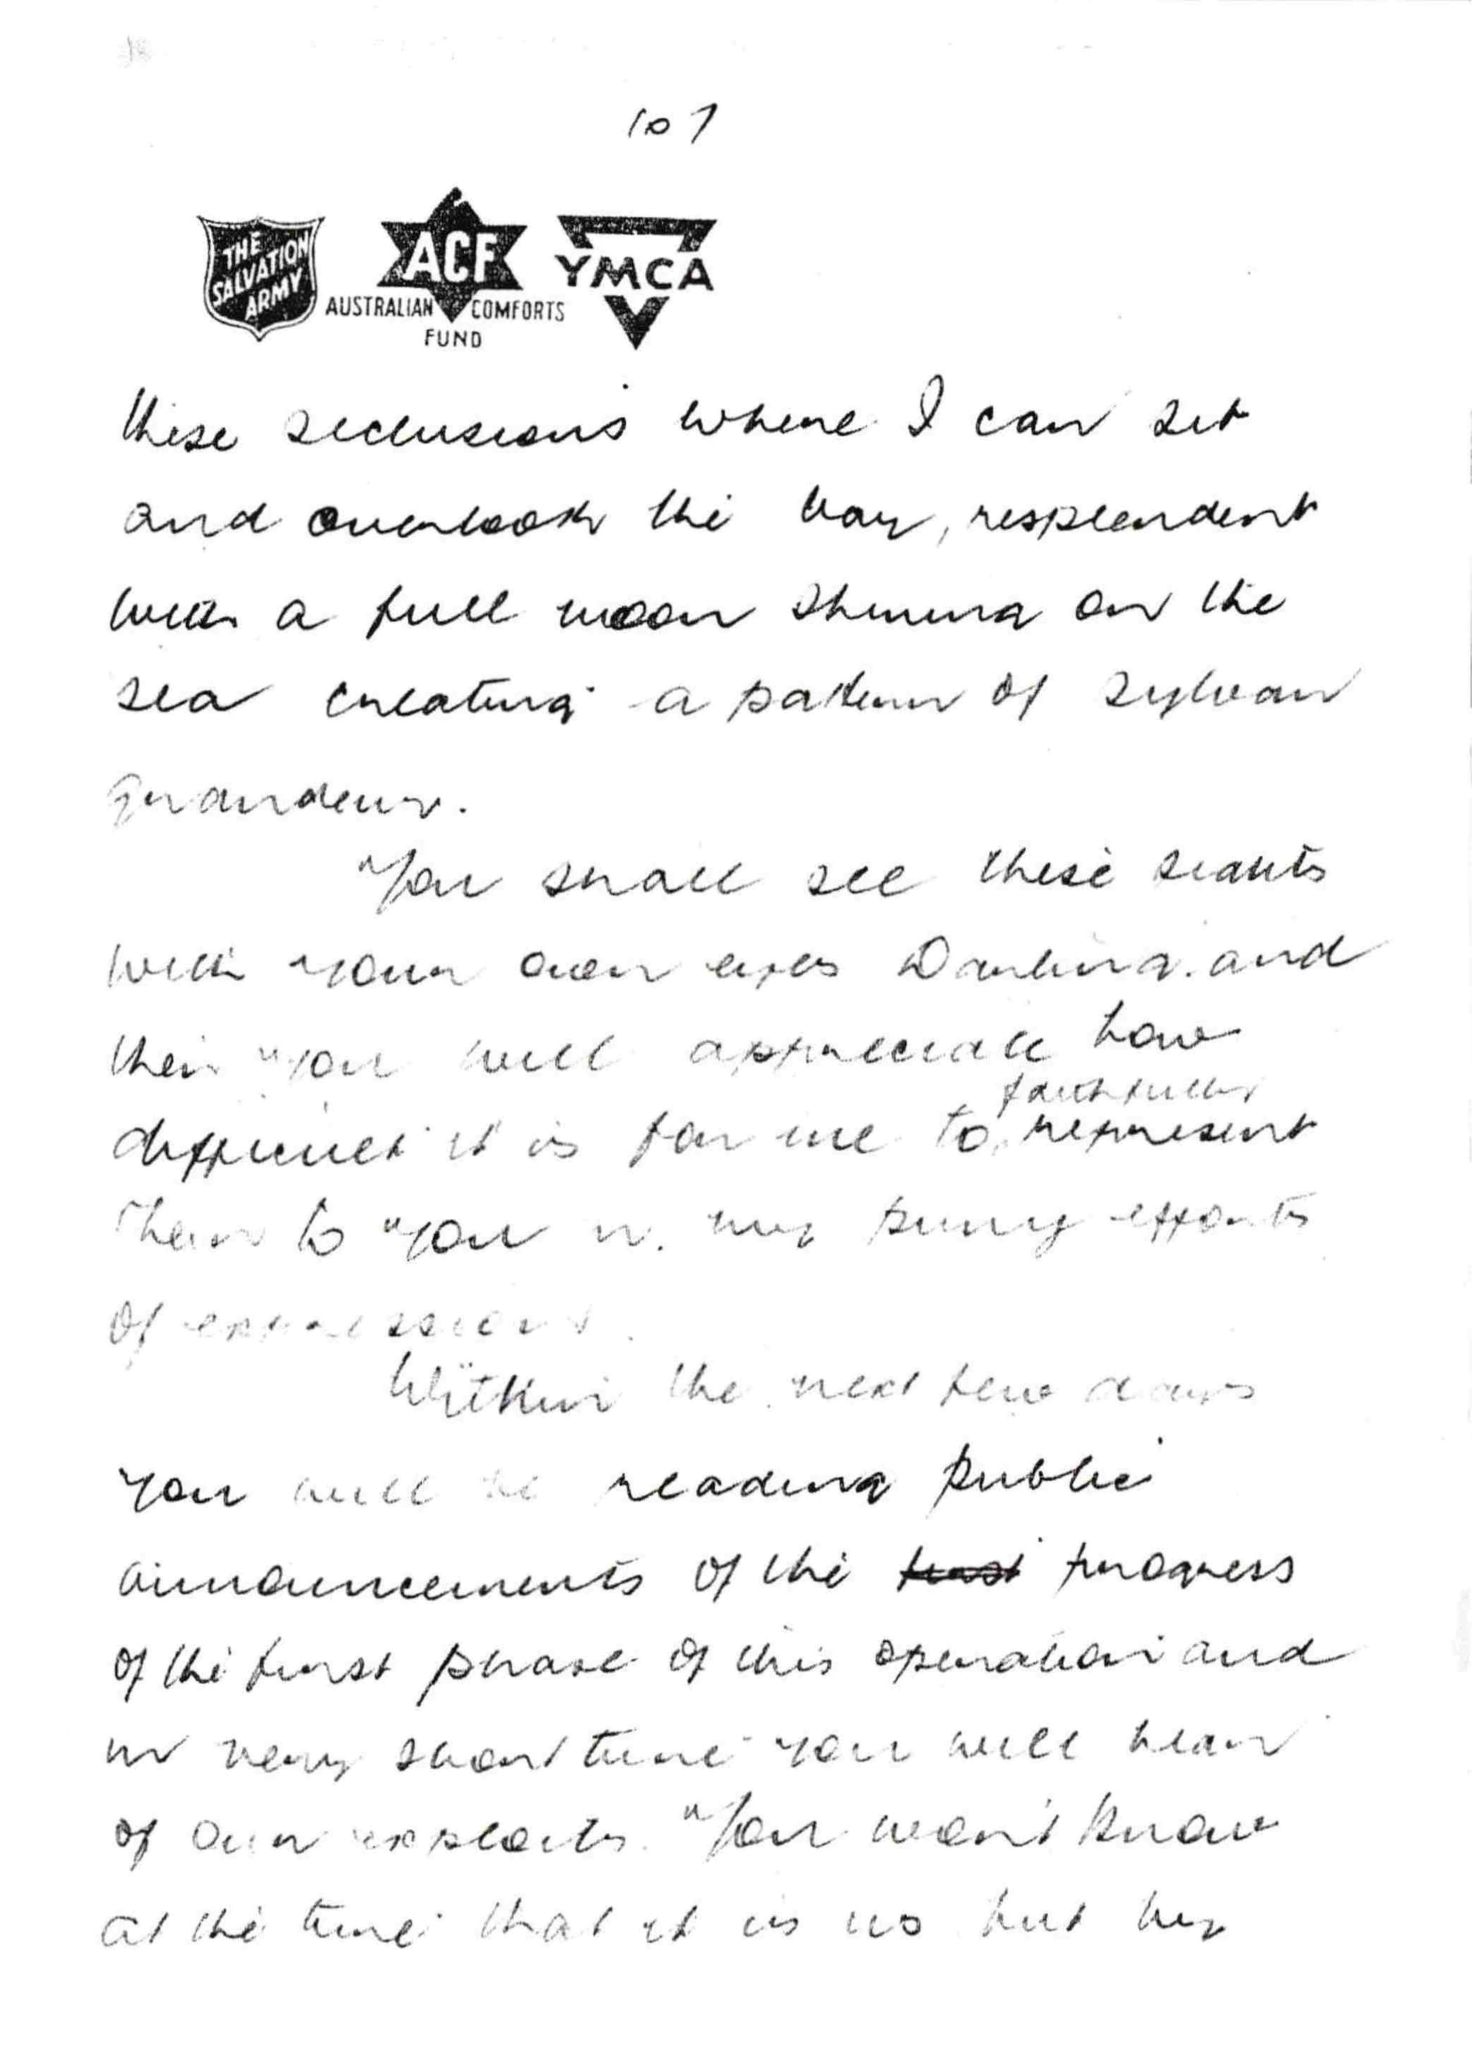 107
THE SALVATION ARMY
ACF
AUSTRALIAN COMFORTS FUND
YMCA
these seclusions where I can sit
and overlook the bay, resplendent
with a full moon shining on the
sea creating a pattern of sylvan
grandeur.
You shall see these
with your own eyes Darling. and
then you will appreciate how
faithfully
difficult it is for me to represent
them to you in my puny efforts
of expression.
Within the next few days
you will be reading public
announcements of the progress
of the first phase of this operation and
in very short time you will hear
of our exploits. You won't know
at the time that it is us but by